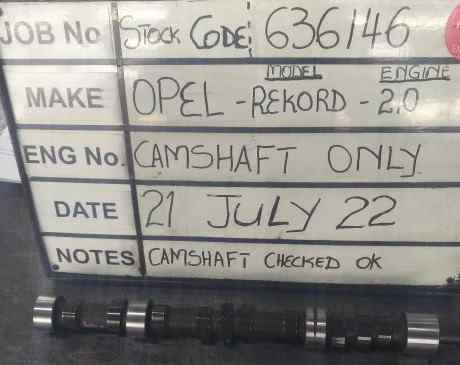 JOB No STOCK CODE: 636146
MODEL ENGINE
MAKE OPEL - REKORD - 2.0
ENG No. CAMSHAFT ONLY
DATE 21 JULY 22
NOTES CAMSHAFT CHECKED OK